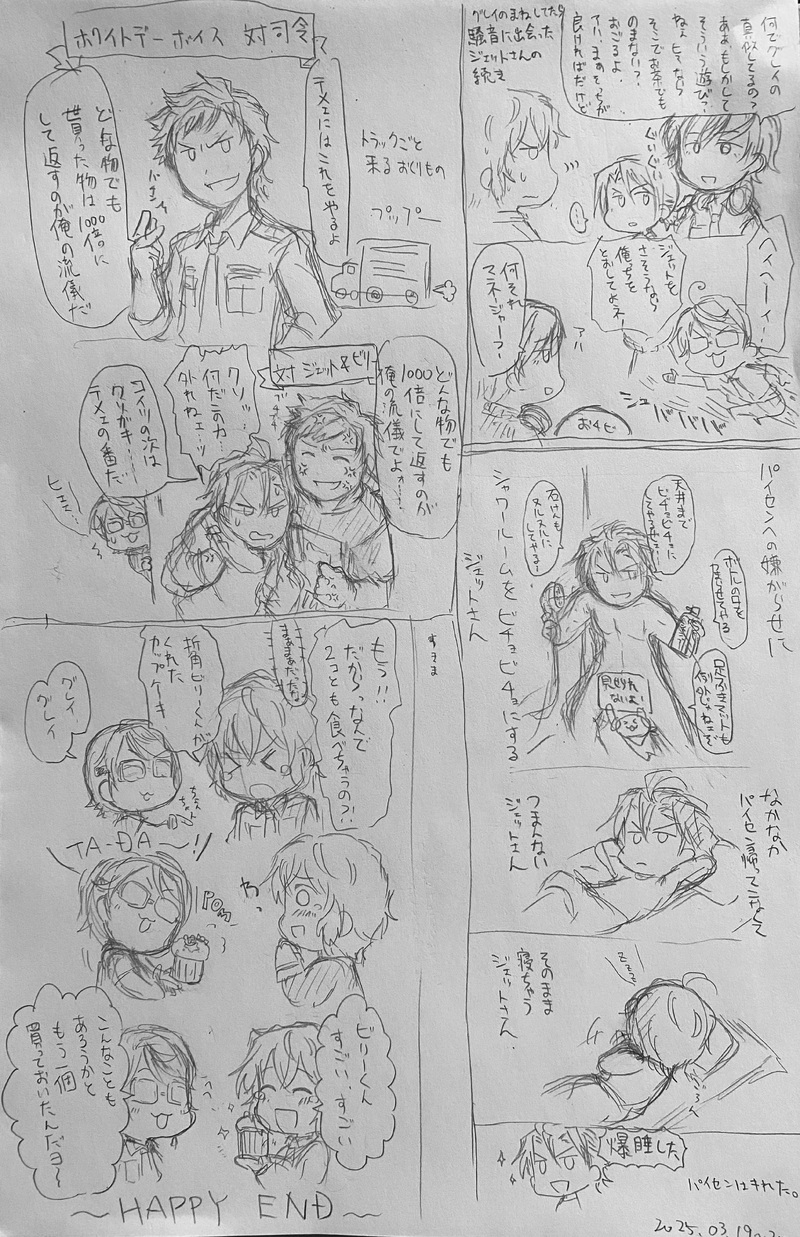 グレイのまねしてたら
騒音に出会った
ジェットさんの
続き
何でグレイの
真似してるの?
ああもしかして
そういう遊び?
なんヒマない?
そこでお茶でも
のまない?
おごるよ
良ければだけど
ぐいぐい
ヘイヘーイ!
ジェットを
さそうなら
俺っちを
とおしてよネ!
何それ
マネージャー?
アハ
おチビ
ホワイトデーボイス 対司令
テメェにはこれをやるよ
どんな物でも
貰った物は1000倍に
して返すのが俺の流儀だ
トラックごと
来るおくりもの
プップー
対 ジェット&ビリー
どんな物でも
1000倍にして返すのが
俺の流儀でよォ……
クソッ
何だこの力…
外れねェ…ッ
コイツの次は
クソガキ…
テメェの番だ
ヒェェ…
パイセンへの嫌がらせに
シャワールームをビチョビチョにする
ジェットさん
天井まで
ビチョビチョに
してやるぜェ…
石けんも
ヌルヌルに
してやる…
足ふきマットも
見せられ
ないよ!
なかなか
パイセン帰ってこなくて
つまんない
ジェットさん
そのまま
寝ちゃう
ジェットさん.
爆睡した
パイセンはキレた。
2025.03.19
もう!!
だからってなんで
2コとも食べちゃうの?!
まあまあだったな
折角ビリーくんが
くれた
カップケーキ
グレイ
グレイ
TA-DA~!
POM
わっ
ビリーくん
すごい、すごい
こんなことも
あろうかと
もう一個
買っておいたんだヨ~
~HAPPY END~